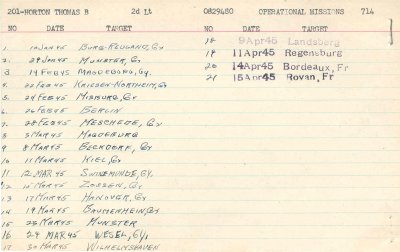 201-HORTON THOMAS B 2d Lt 0829480 OPERATIONAL MISSIONS 714
NO DATE TARGET NO DATE TARGET
1. 10 JAN 45 BURG-REULAND, Gy
2. 29 JAN 45 MUNSTER, Gy
3. 14 FEB 45 MAGDEBURG, Gy.
4. 22 FEB 45 KREISEN-NORTHEIM, Gy
5. 24 FEB 45 MISBURG, Gy
6. 26 FEB 45 BERLIN
7. 28 FEB 45 MESCHEDE, Gy
8 3 MAR 45 MAGDEBURG
9 8 MAR 45 BECKDORF, Gy
10 11 MAR 45 KIEL, Gy
11 12 MAR 45 SWINEMUNDE, Gy.
12 15 MAR 45 ZOSSEN, Gy
13 17 MAR 45 HANOVER, Gy
14 19 MAR 45 BAUMERHEIM, Gy
15 23 MAR 45 MUNSTER
16 24 MAR 45 WESEL, Gy,
17 30 MAR 45 WILHELMSHAVEN
18 9Apr45 Landsberg
19 11Apr45 Regensburg
20 14Apr45 Bordeaux, Fr
21 15Apr45 Rovan, Fr